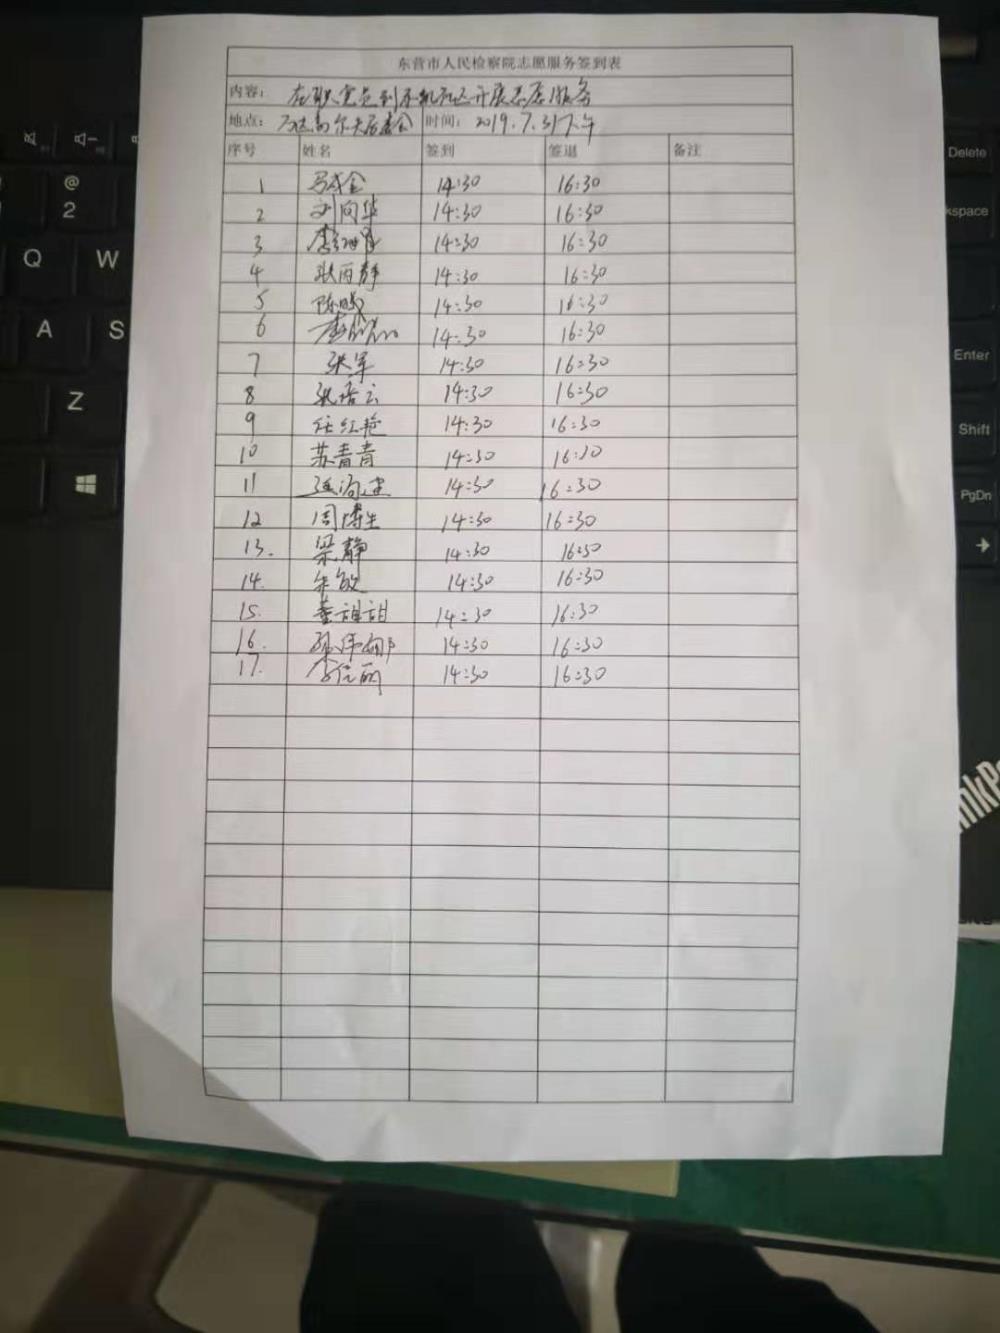 东营市人民检察院志愿服务签到表
内容： 在职党员到东凯社区开展志愿服务
地点： 万达高尔夫居委会 时间： 2019.7.31下午
序号 姓名 签到 签退 备注
1 马成金 14:30 16:30
2 刘向华 14:30 16:30
3 14:30 16:30
4 耿丙静 14:30 16:30
5 陈曦 14:30 16:30
6 14:30 16:30
7 张军 14:30 16:30
8 14:30 16:30
9 任红艳 14:30 16:30
10 苏青青 14:30 16:30
11 14:30 16:30
12 周博生 14:30 16:30
13. 梁静 14:30 16:30
14. 朱敏 14:30 16:30
15. 董甜甜 14:30 16:30
16. 孙伟娜 14:30 16:30
17. 14:30 16:30
@
2
Q W
A S
Z
Delete
kspace
Enter
Shift
PgDn